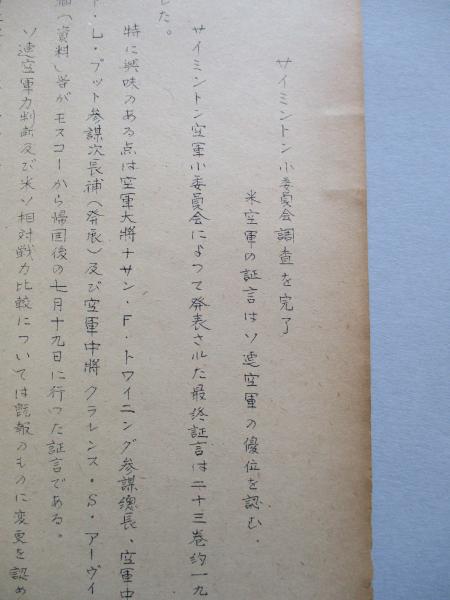 サイミントン小委員会調査を完了
米空軍の証言はソ連空軍の優位を認む.
サイミントン空軍小委員会によつて発表された最終証言は二十三巻約一九
した。
特に興味のある点は空軍大将ナサン・F・トワイニング参謀總長、空軍中
ト・L・プット参謀次長補(発展)及び空軍中將クラレンス・S・アーヴィ
補(資料)等がモスコーから帰国後の七月十九日に行つた証言である。
ソ連空軍力判断及び米ソ相対戦力比較については既報のものに変更を認め